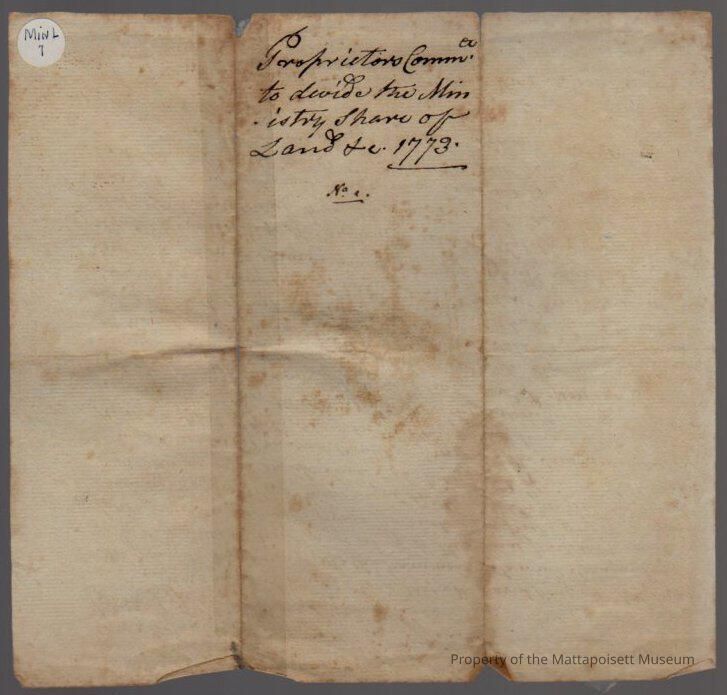 MinL
7
Proprietors Comm.ee
to devide the Min
istry Share of
Land &c. 1773.
No 1.
Property of the Mattapoisett Museum